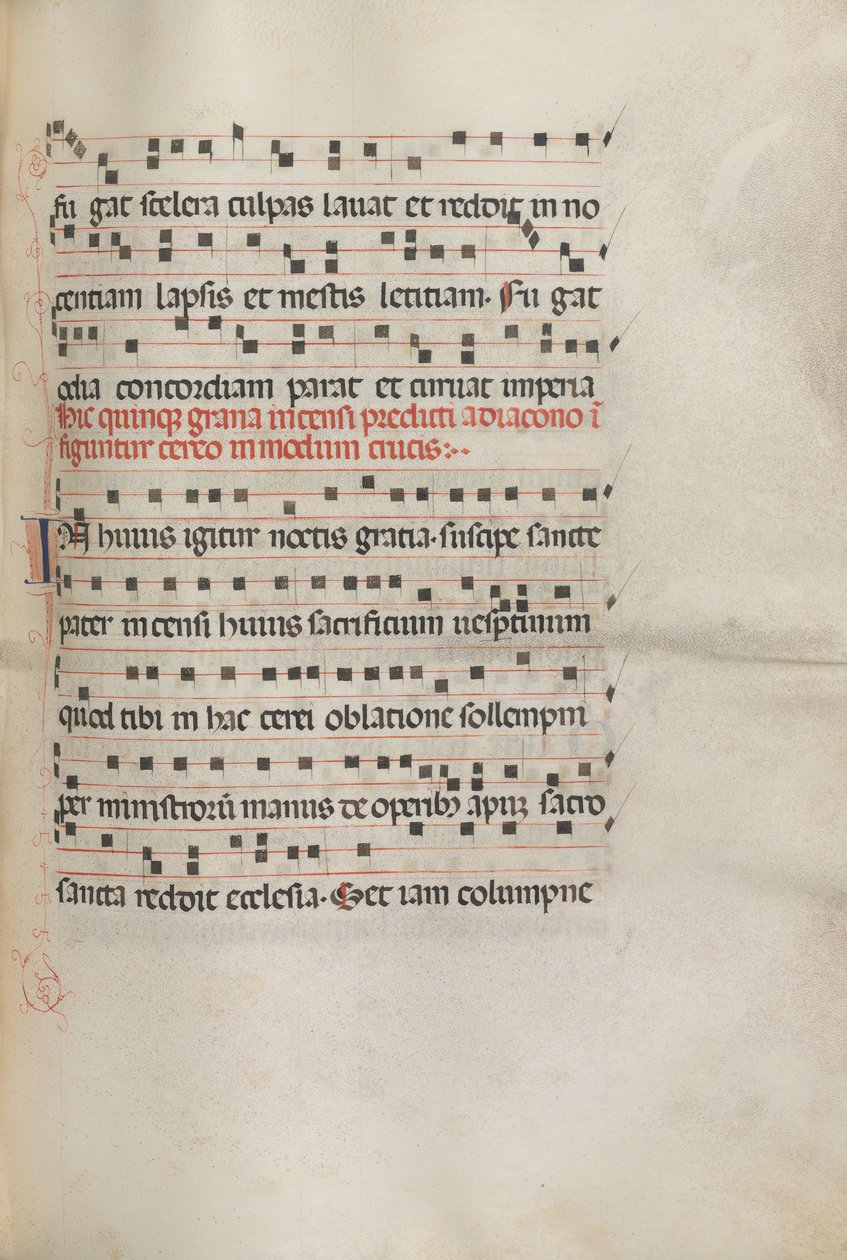 fu gat scelera culpas lauat et reddit in no
centiam lapsis et mestis letitiam. Fu gat
odia concordiam parat et curuat imperia
Hic quinqꝫ grana incensi predicti a diacono ī
figuntur cereo in modum crucis:
IN huius igitur noctis gratia. suscipe sancte
pater incensi huius sacrificium uesptinum
quod tibi in hac cerei oblatione sollempni
per ministrorū manus de operibꝫ apuꝫ sacro
sancta reddit ecclesia. Set iam columpne